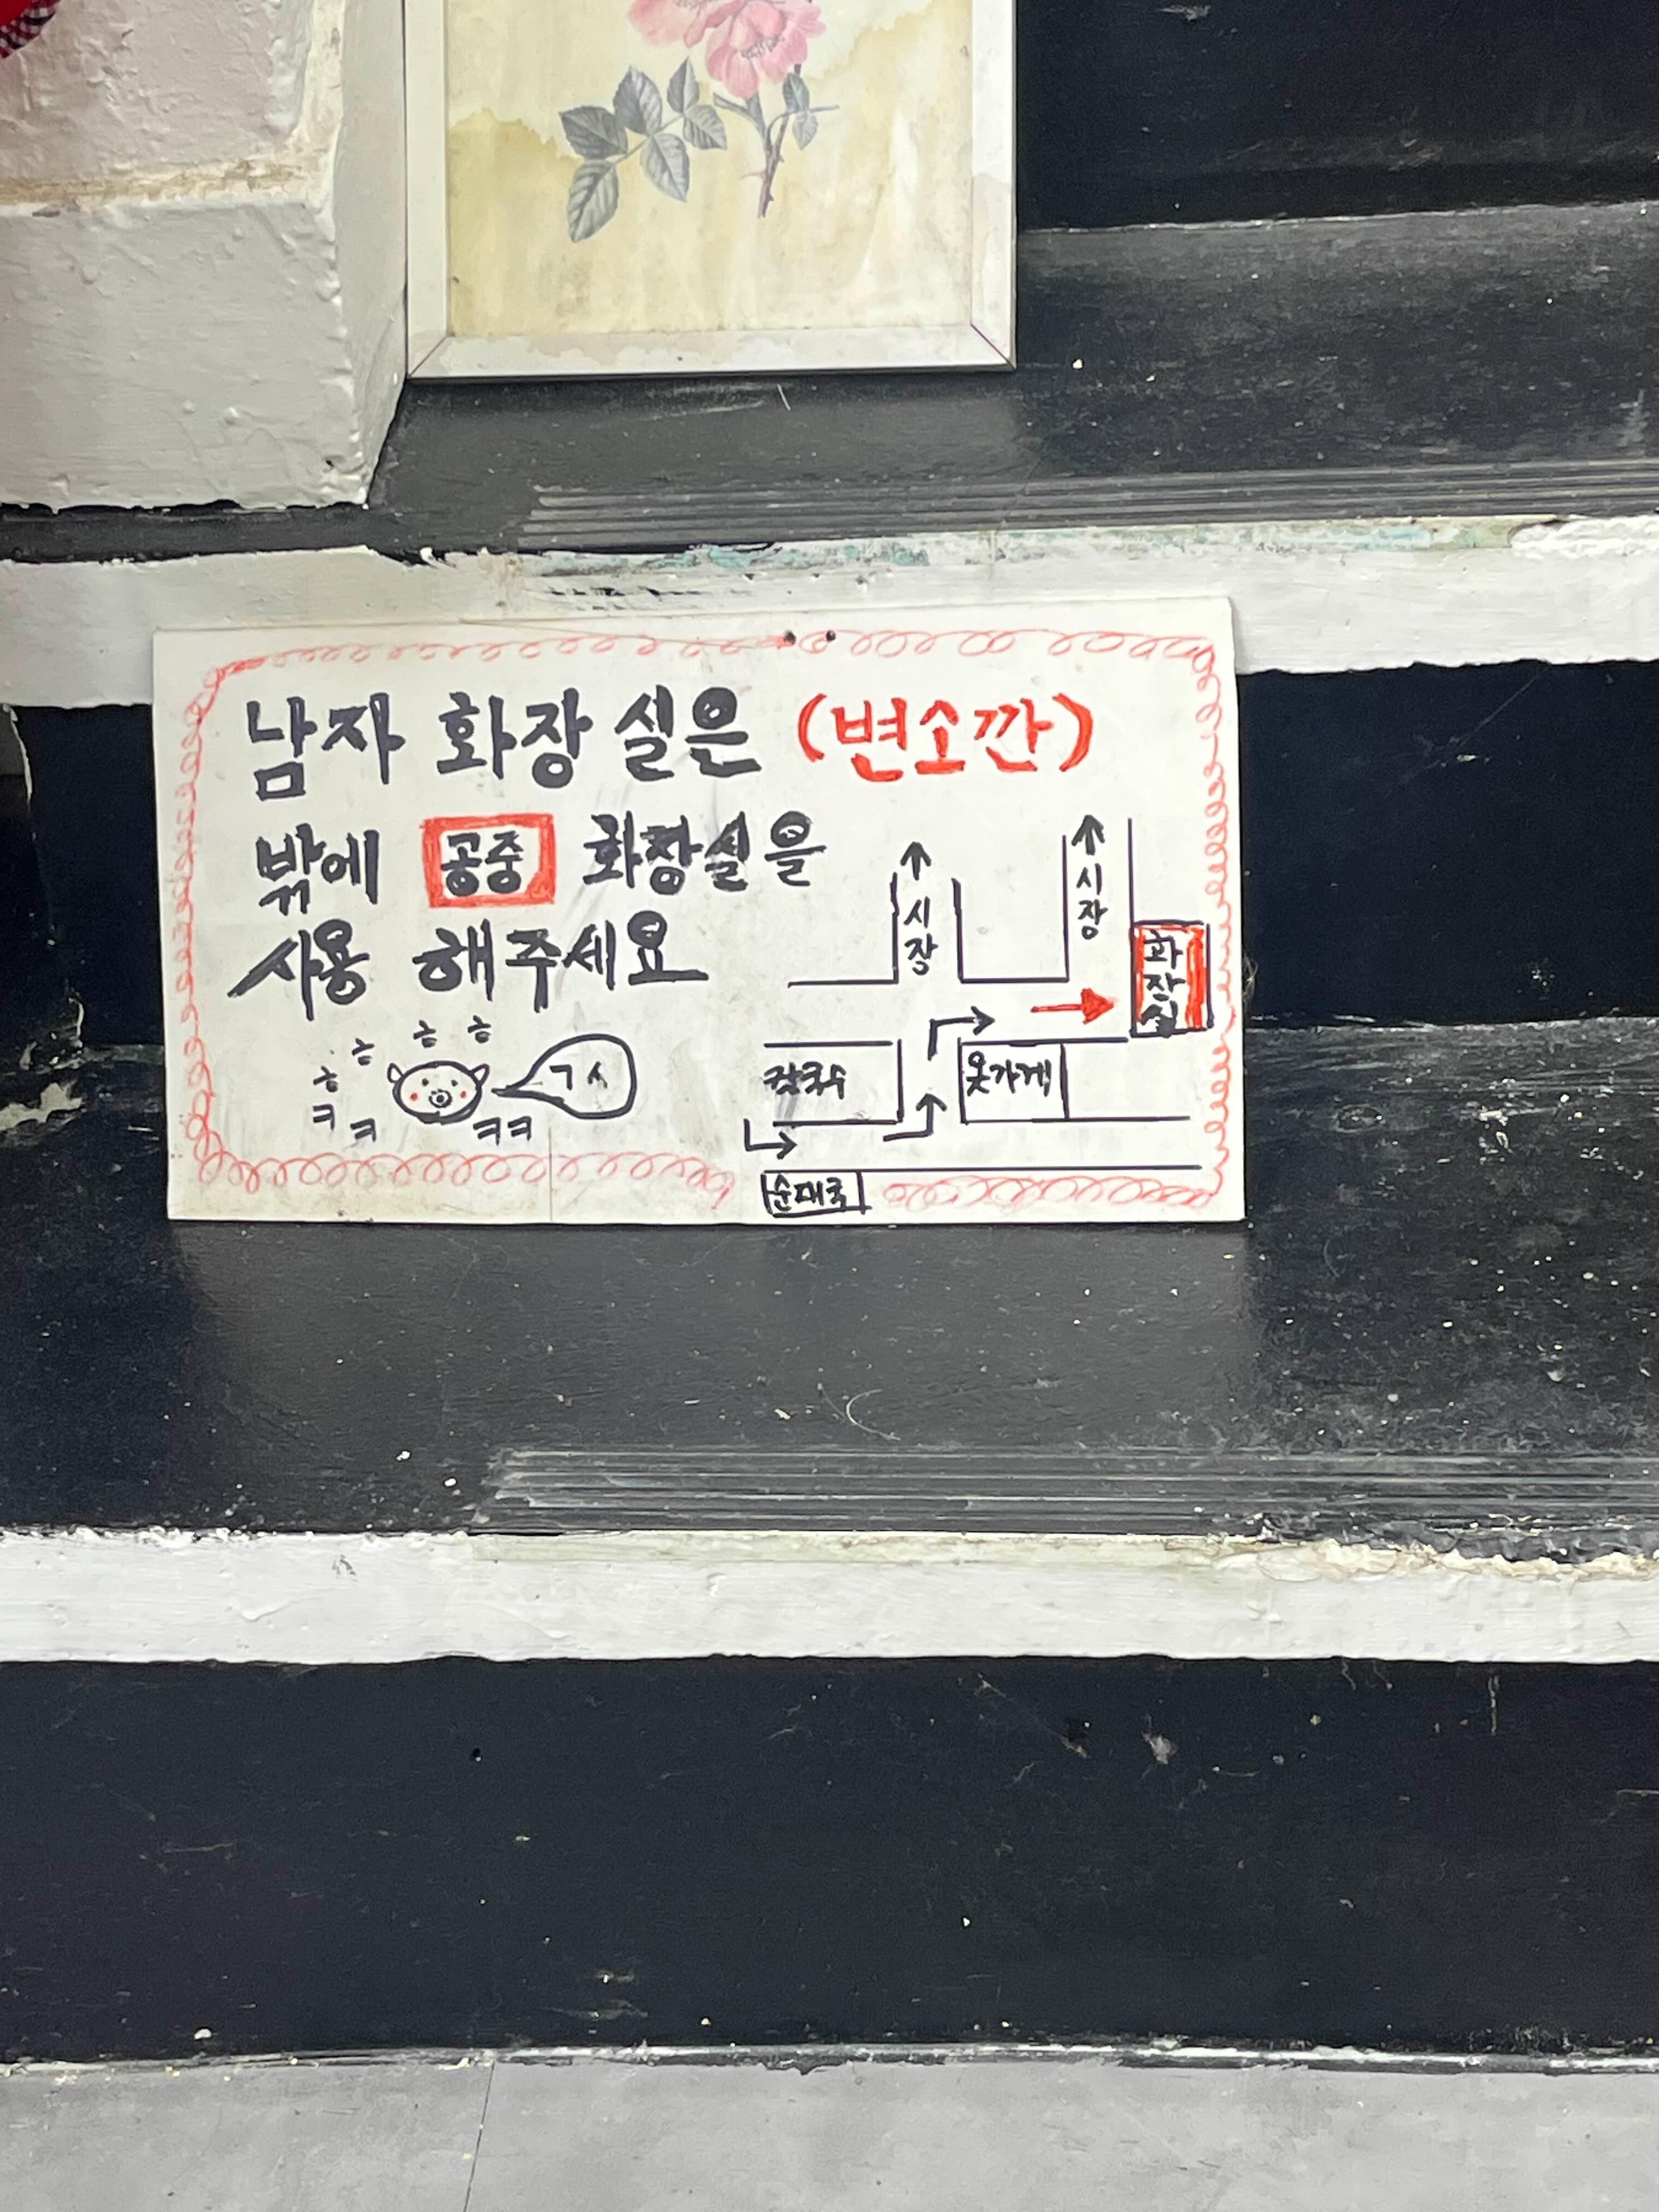 남자 화장실은 (변소깐)
밖에 공중 화장실을
사용 해주세요
흐 흐 흐 흐
ㅋ ㅋ ㅋㅋ
ㄱㅅ
시장
시장
화장실
칼국수
옷가게
순대국